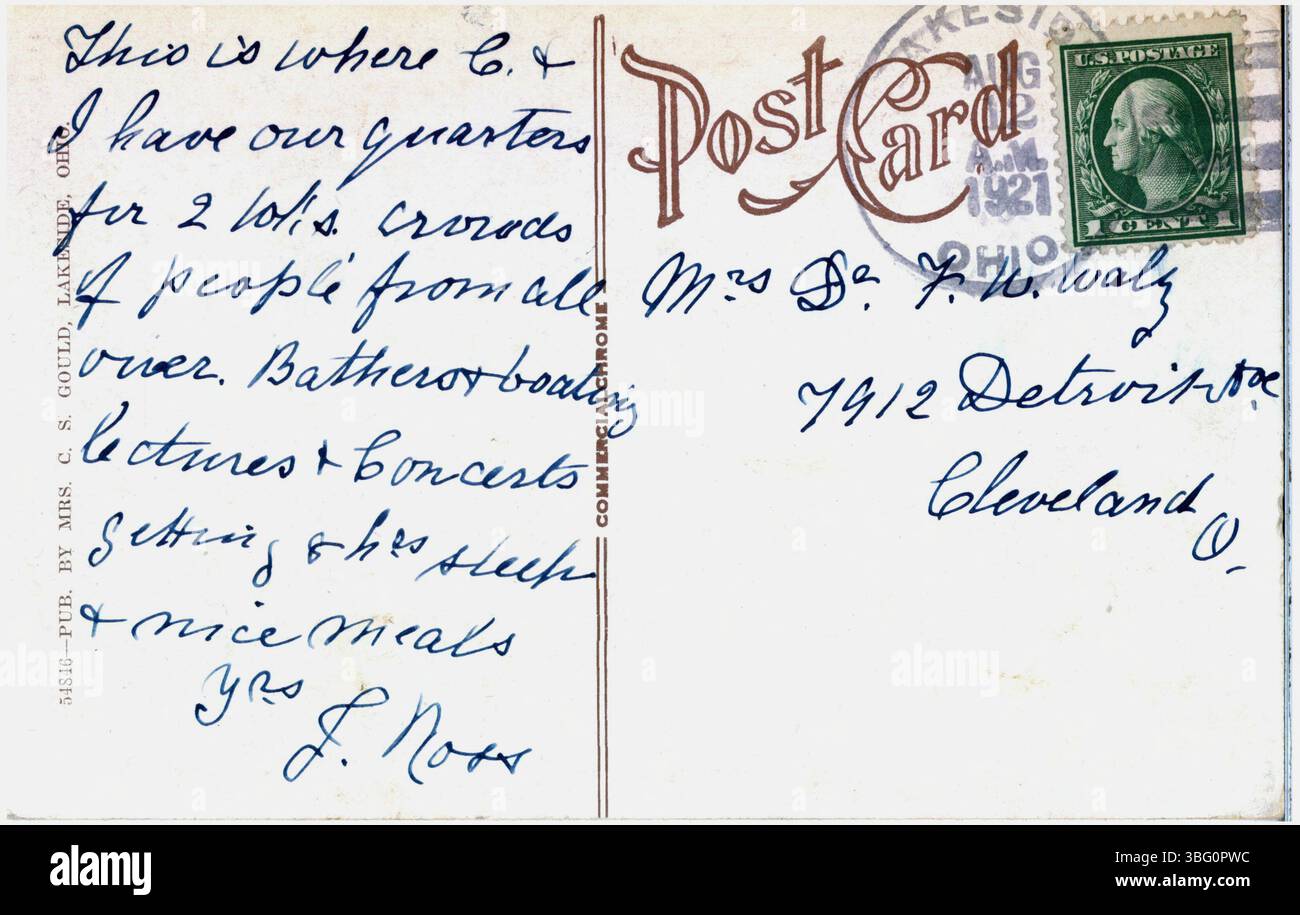 This is where C. &
I have our quarters
for 2 wk's. crowds
of people from all
over. Bathers & boating
lectures & Concerts
getting 8 hrs sleep
& nice meals
Yrs
F. Noss
54846—PUB. BY MRS. C. S. GOULD, LAKESIDE, OHIO.
COMMERCIALCHROME
Post Card
LAKESIDE
AUG
12
A.M.
1921
OHIO
U.S. POSTAGE
1 CENT 1
Mrs Dr F. W. Walz
7912 Detroit Ave
Cleveland
O.
alamy
Image ID: 3BG0PWC
www.alamy.com